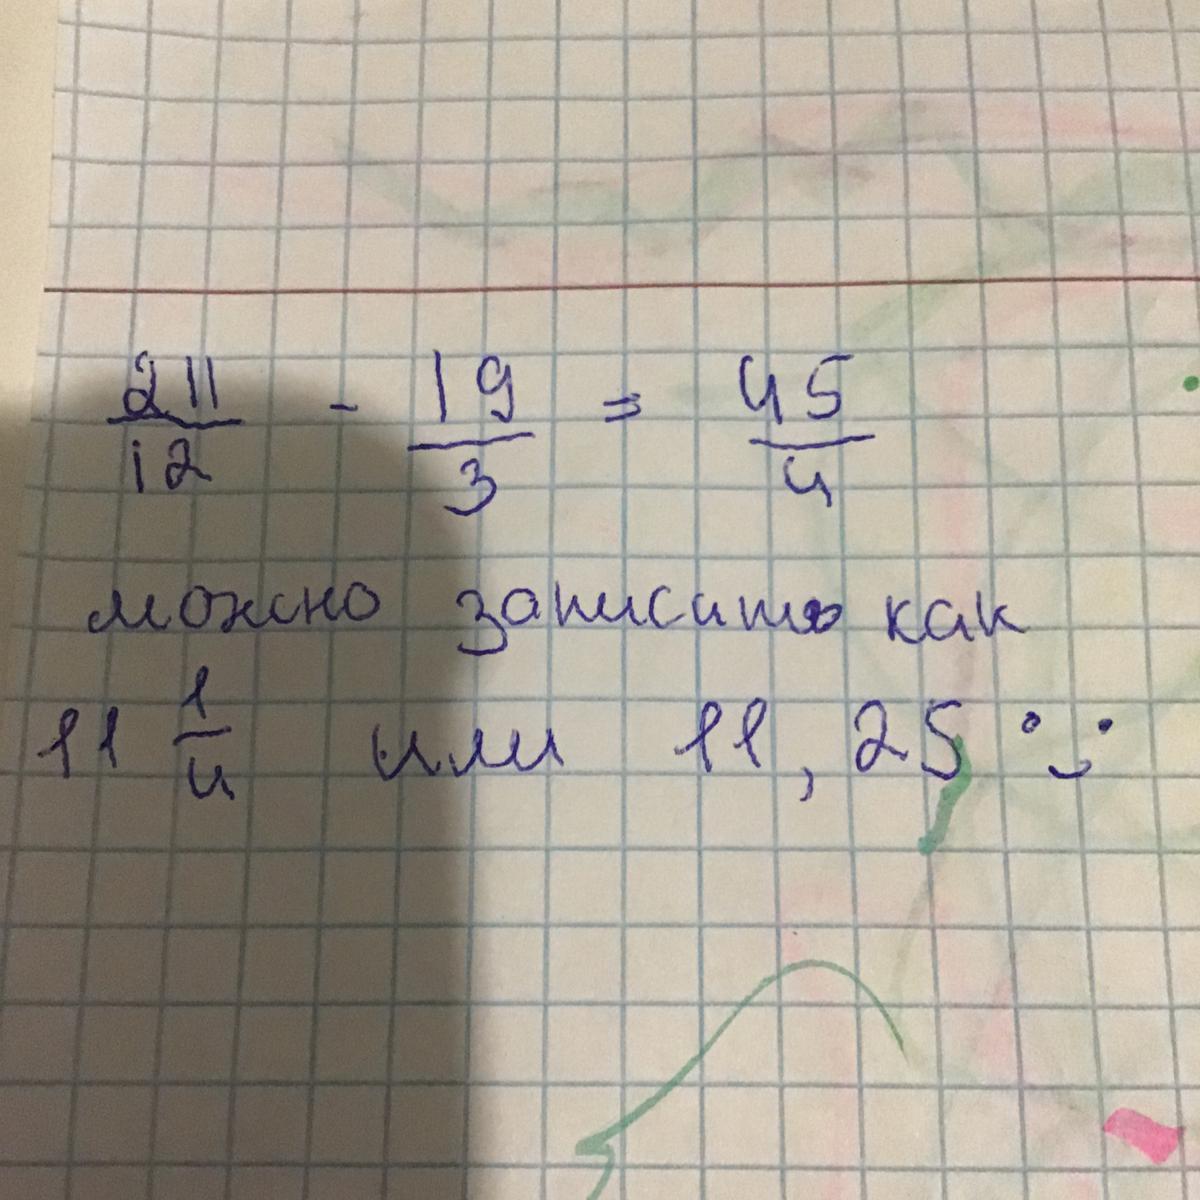 211/12 - 19/3 = 45/4
можно записать как
11 1/4 или 11,25 :)